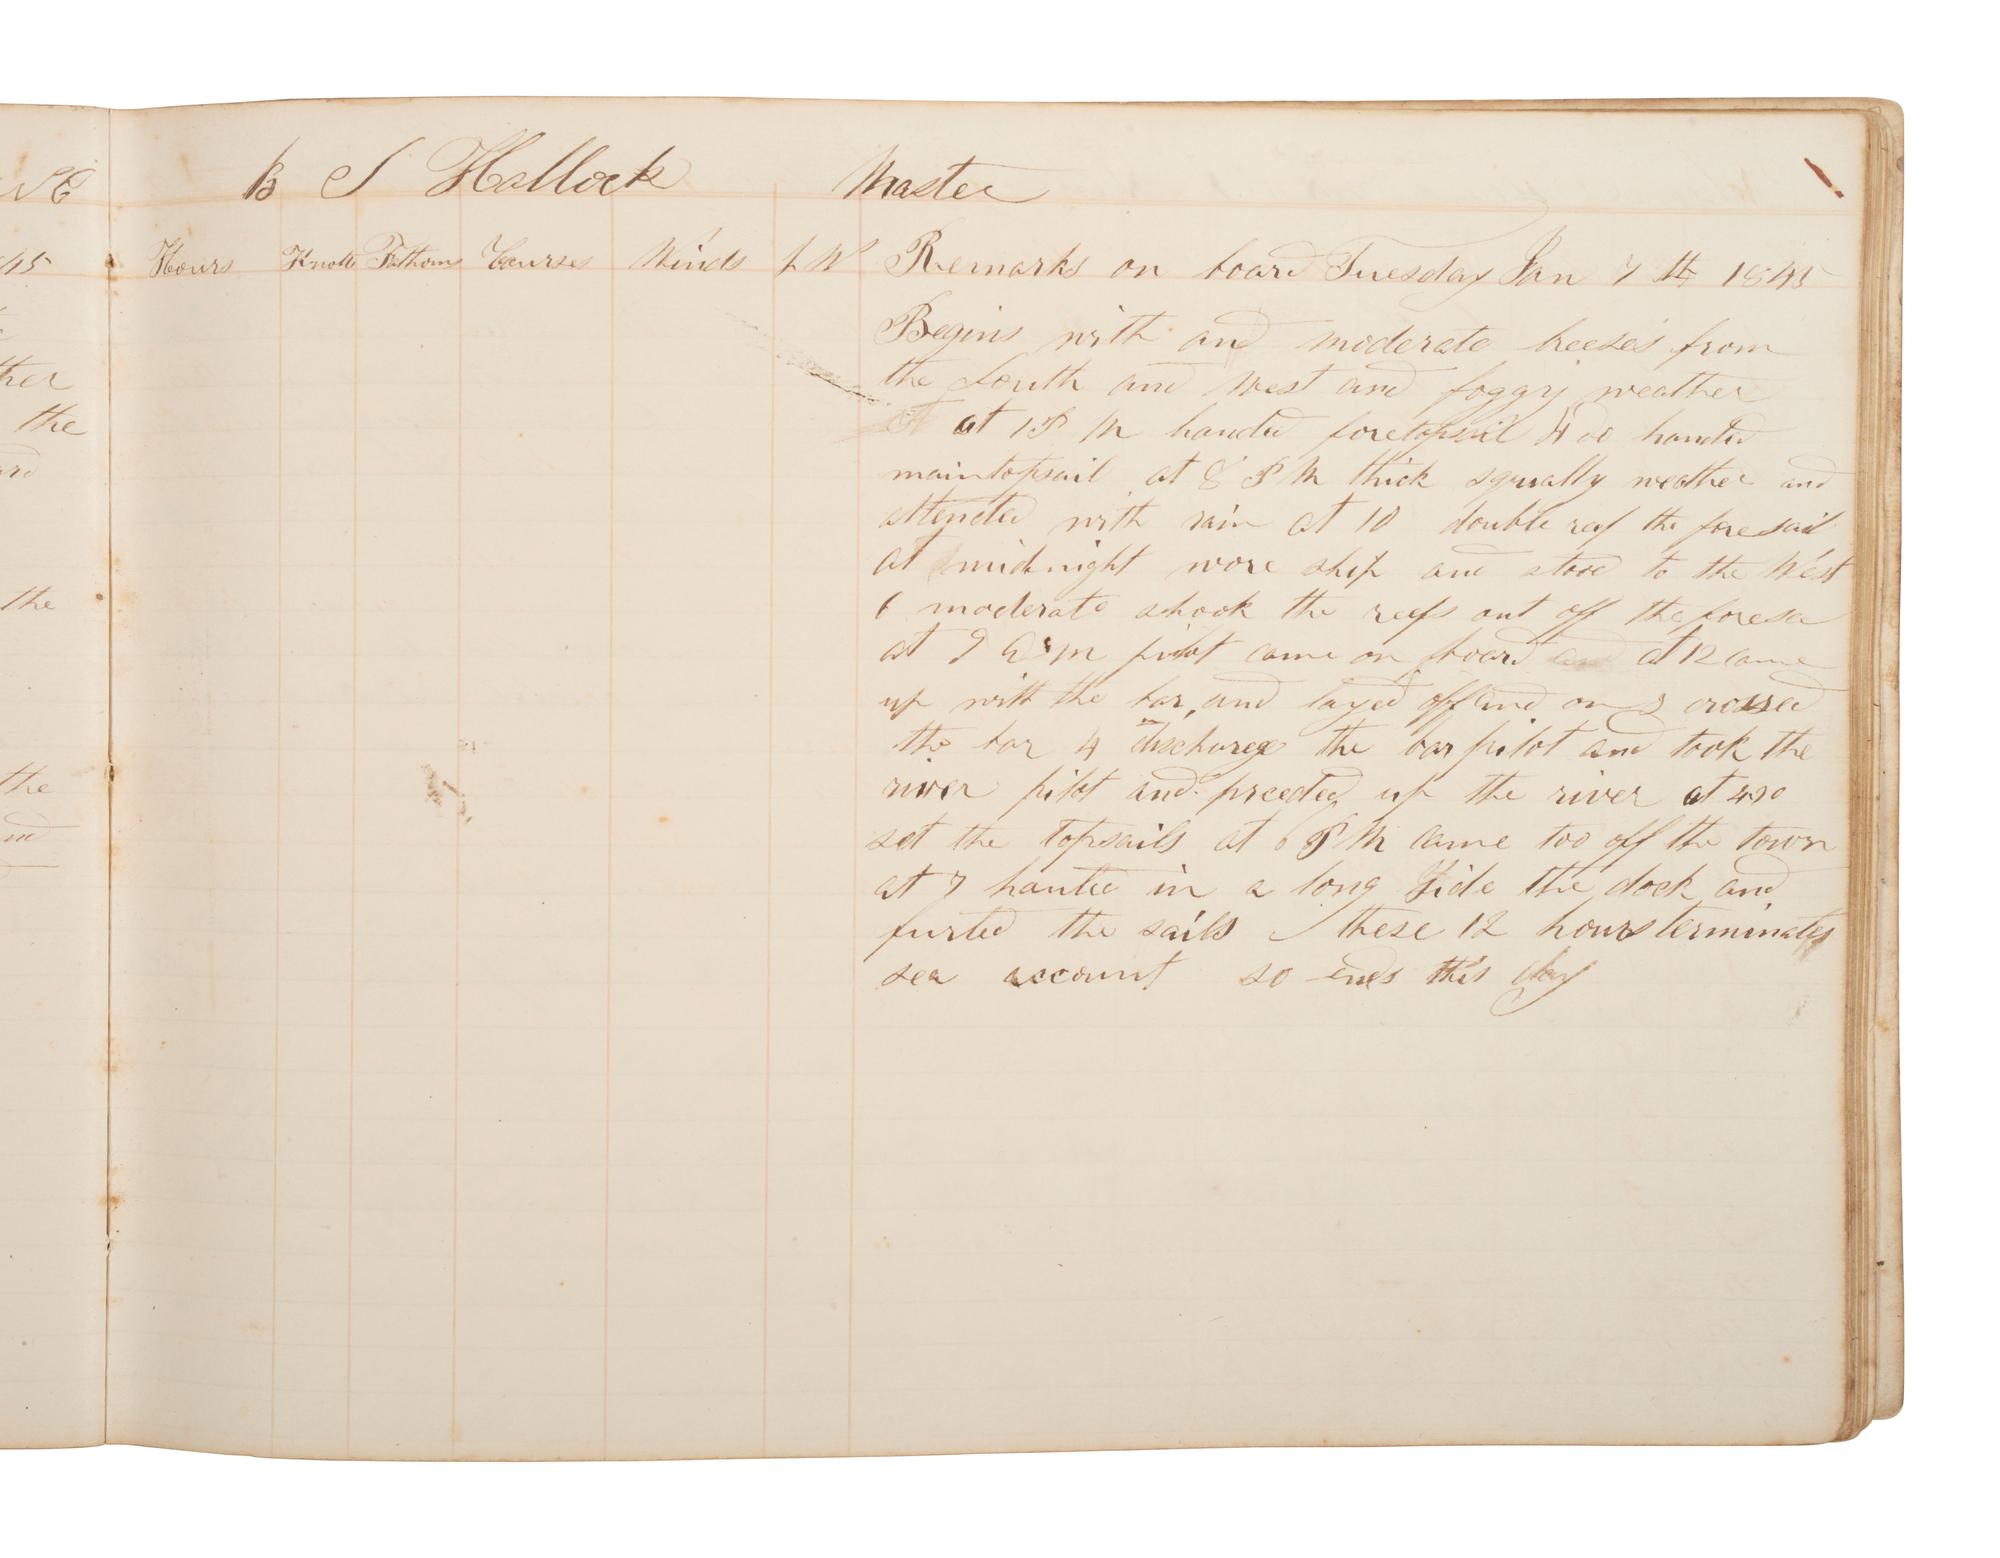 VE
B S Hallock Master
45
Hours Knotts Fathoms Courses Winds L W Remarks on board Tuesday Jan 7 th 1845
Begins with and moderate breezes from
the South and West and foggy weather
ther
at 1 P M handed foretopsail 4 00 handed
the
maintopsail at 8 P M thick squally weather and
attended with rain at 10 double reef the foresail
at midnight wore ship and stood to the West
6 moderate shook the reefs out off the foresa
the
at 9 a m pilot came on board and at 12 came
up with the bar, and layed off and on 2 crossed
the bar 4 discharge the bar pilot and took the
the
river pilot and preeded up the river at 4
nd
set the topsails at 6 P M came too off the town
at 7 hauled in a long side the dock and
furled the sails these 12 hours terminates
sea account so ends this day